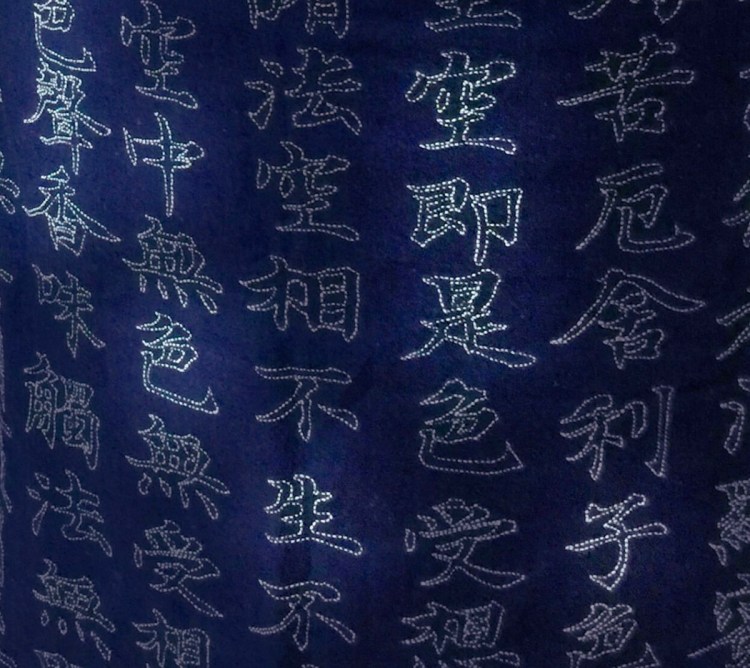 苦厄舍利子色
空即是色受想
法空相不生不
空中無色無受想
色聲香味觸法無